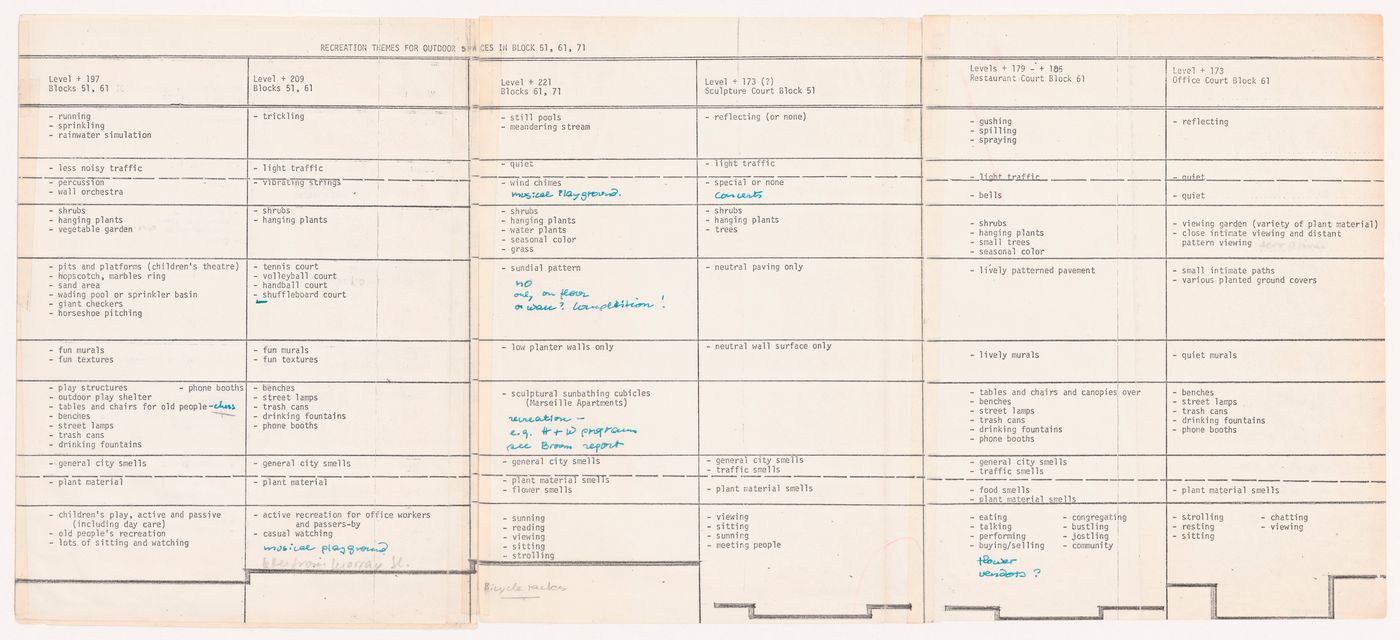 RECREATION THEMES FOR OUTDOOR SPACES IN BLOCK 51, 61, 71
Level + 197
Blocks 51, 61
- running
- sprinkling
- rainwater simulation
- less noisy traffic
- percussion
- wall orchestra
- shrubs
- hanging plants
- vegetable garden
- pits and platforms (children's theatre)
- hopscotch, marbles ring
- sand area
- wading pool or sprinkler basin
- giant checkers
- horseshoe pitching
- fun murals
- fun textures
- play structures - phone booths
- outdoor play shelter
- tables and chairs for old people - chess
- benches
- street lamps
- trash cans
- drinking fountains
- general city smells
- plant material
- children's play, active and passive
(including day care)
- old people's recreation
- lots of sitting and watching
Level + 209
Blocks 51, 61
- trickling
- light traffic
- vibrating strings
- shrubs
- hanging plants
- tennis court
- volleyball court
- handball court
- shuffleboard court
- fun murals
- fun textures
- benches
- street lamps
- trash cans
- drinking fountains
- phone booths
- general city smells
- plant material
- active recreation for office workers
and passers-by
- casual watching
musical playground
from Murray St.
Level + 221
Blocks 61, 71
- still pools
- meandering stream
- quiet
- wind chimes
musical playground.
- shrubs
- hanging plants
- water plants
- seasonal color
- grass
- sundial pattern
no
only on floor
or wall? Competition!
- low planter walls only
- sculptural sunbathing cubicles
(Marseille Apartments)
recreation -
e.g. H + W programs
see Broom report
- general city smells
- plant material smells
- flower smells
- sunning
- reading
- viewing
- sitting
- strolling
Bicycle racks
Level + 173 (?)
Sculpture Court Block 51
- reflecting (or none)
- light traffic
- special or none
Concerts
- shrubs
- hanging plants
- trees
- neutral paving only
- neutral wall surface only
- general city smells
- traffic smells
- plant material smells
- viewing
- sitting
- sunning
- meeting people
Levels + 179 - + 186
Restaurant Court Block 61
- gushing
- spilling
- spraying
- light traffic
- bells
- shrubs
- hanging plants
- small trees
- seasonal color
- lively patterned pavement
- lively murals
- tables and chairs and canopies over
- benches
- street lamps
- trash cans
- drinking fountains
- phone booths
- general city smells
- traffic smells
- food smells
- plant material smells
- eating - congregating
- talking - bustling
- performing - jostling
- buying/selling - community
flower
vendors ?
Level + 173
Office Court Block 61
- reflecting
- quiet
- quiet
- viewing garden (variety of plant material)
- close intimate viewing and distant
pattern viewing
- small intimate paths
- various planted ground covers
- quiet murals
- benches
- street lamps
- trash cans
- drinking fountains
- phone booths
- plant material smells
- strolling - chatting
- resting - viewing
- sitting